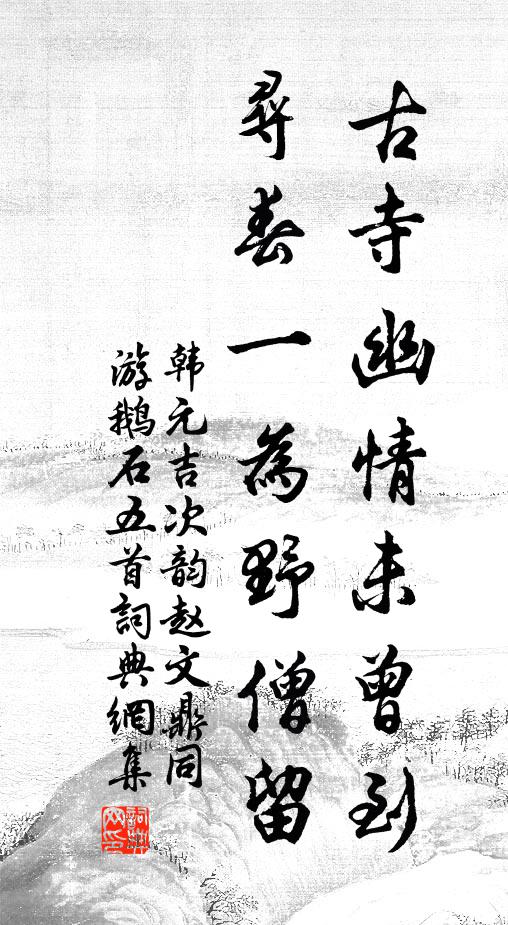 古寺幽情未曾到
尋春一為野僧留
韩元吉次韵赵文鼎同
游鹅石五首詞典網集